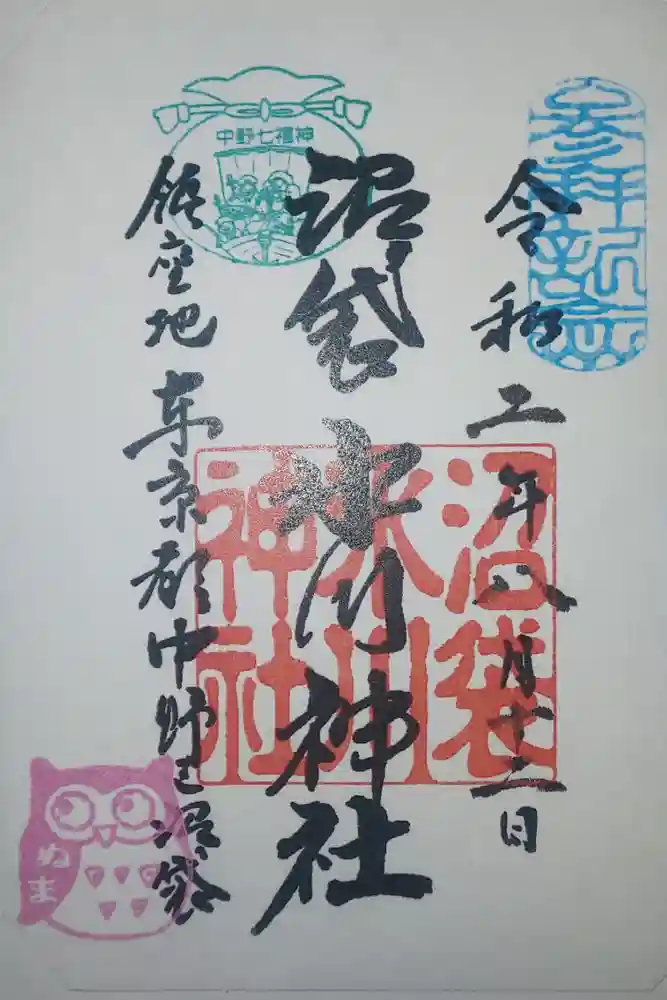 参拝記念
令和二年八月十二日
沼袋
氷川
神社
中野七福神
沼袋氷川神社
鎮座地 東京都中野区沼袋
ぬま